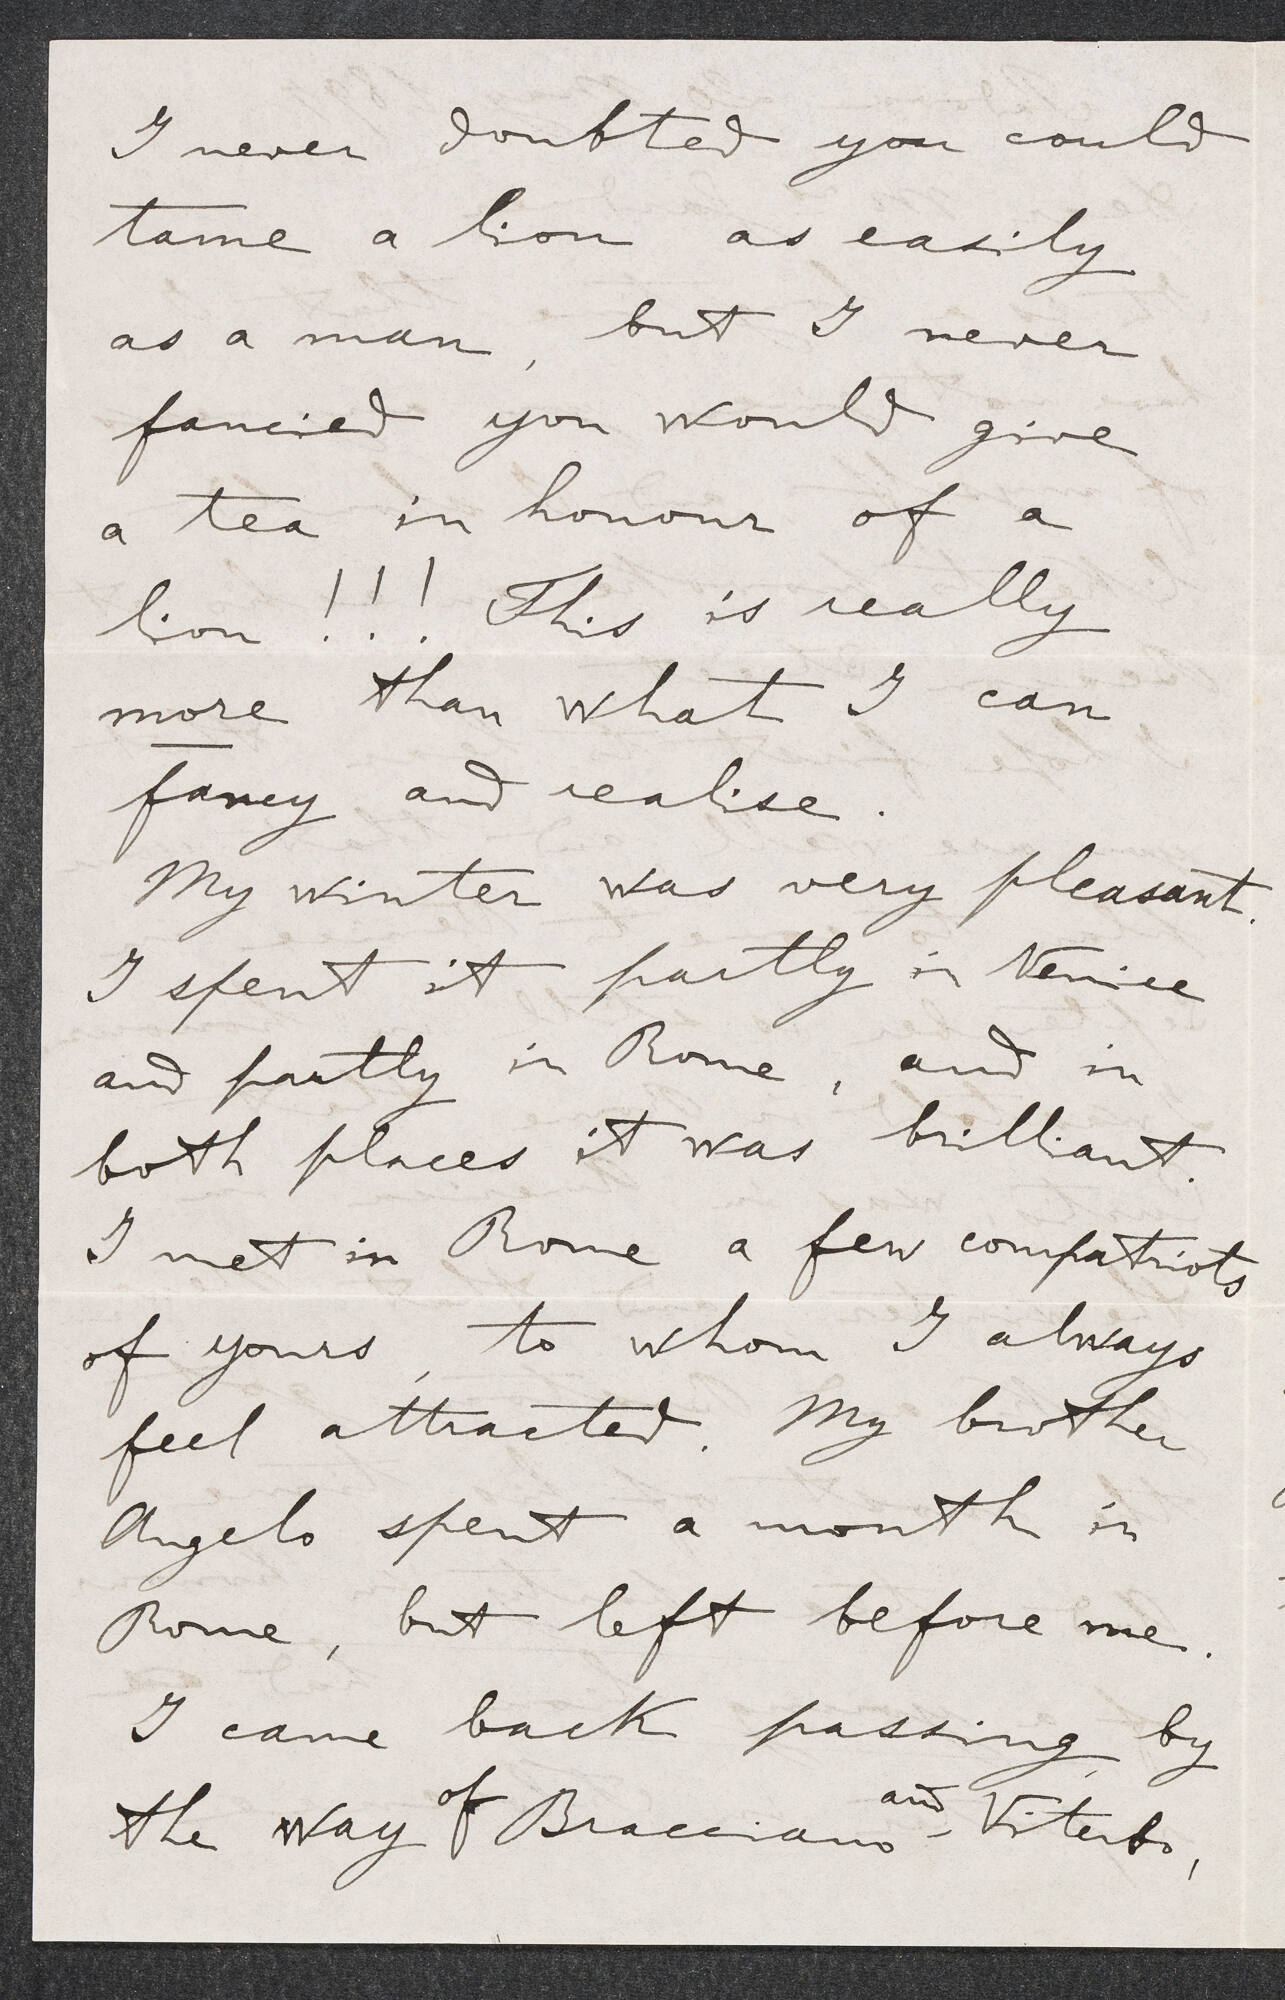 I never doubted you could
tame a lion as easily
as a man, but I never
fancied you would give
a tea in honour of a
lion !!! This is really
more than what I can
fancy and realise.
My winter was very pleasant.
I spent it partly in Venice
and partly in Rome, and in
both places it was brilliant.
I met in Rome a few compatriots
of yours, to whom I always
feel attracted. My brother
Angelo spent a month in
Rome, but left before me.
I came back passing by
the way of Bracciano - and Viterbo,